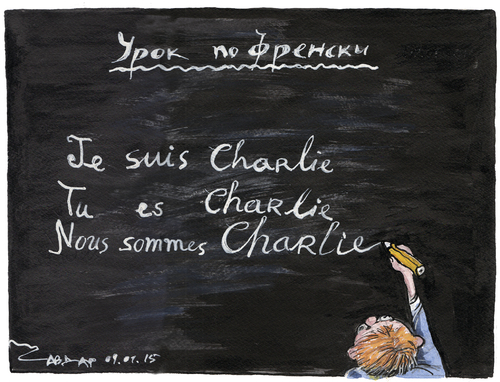 Урок по Френски
Je suis Charlie
Tu es Charlie
Nous sommes Charlie
09.01.15